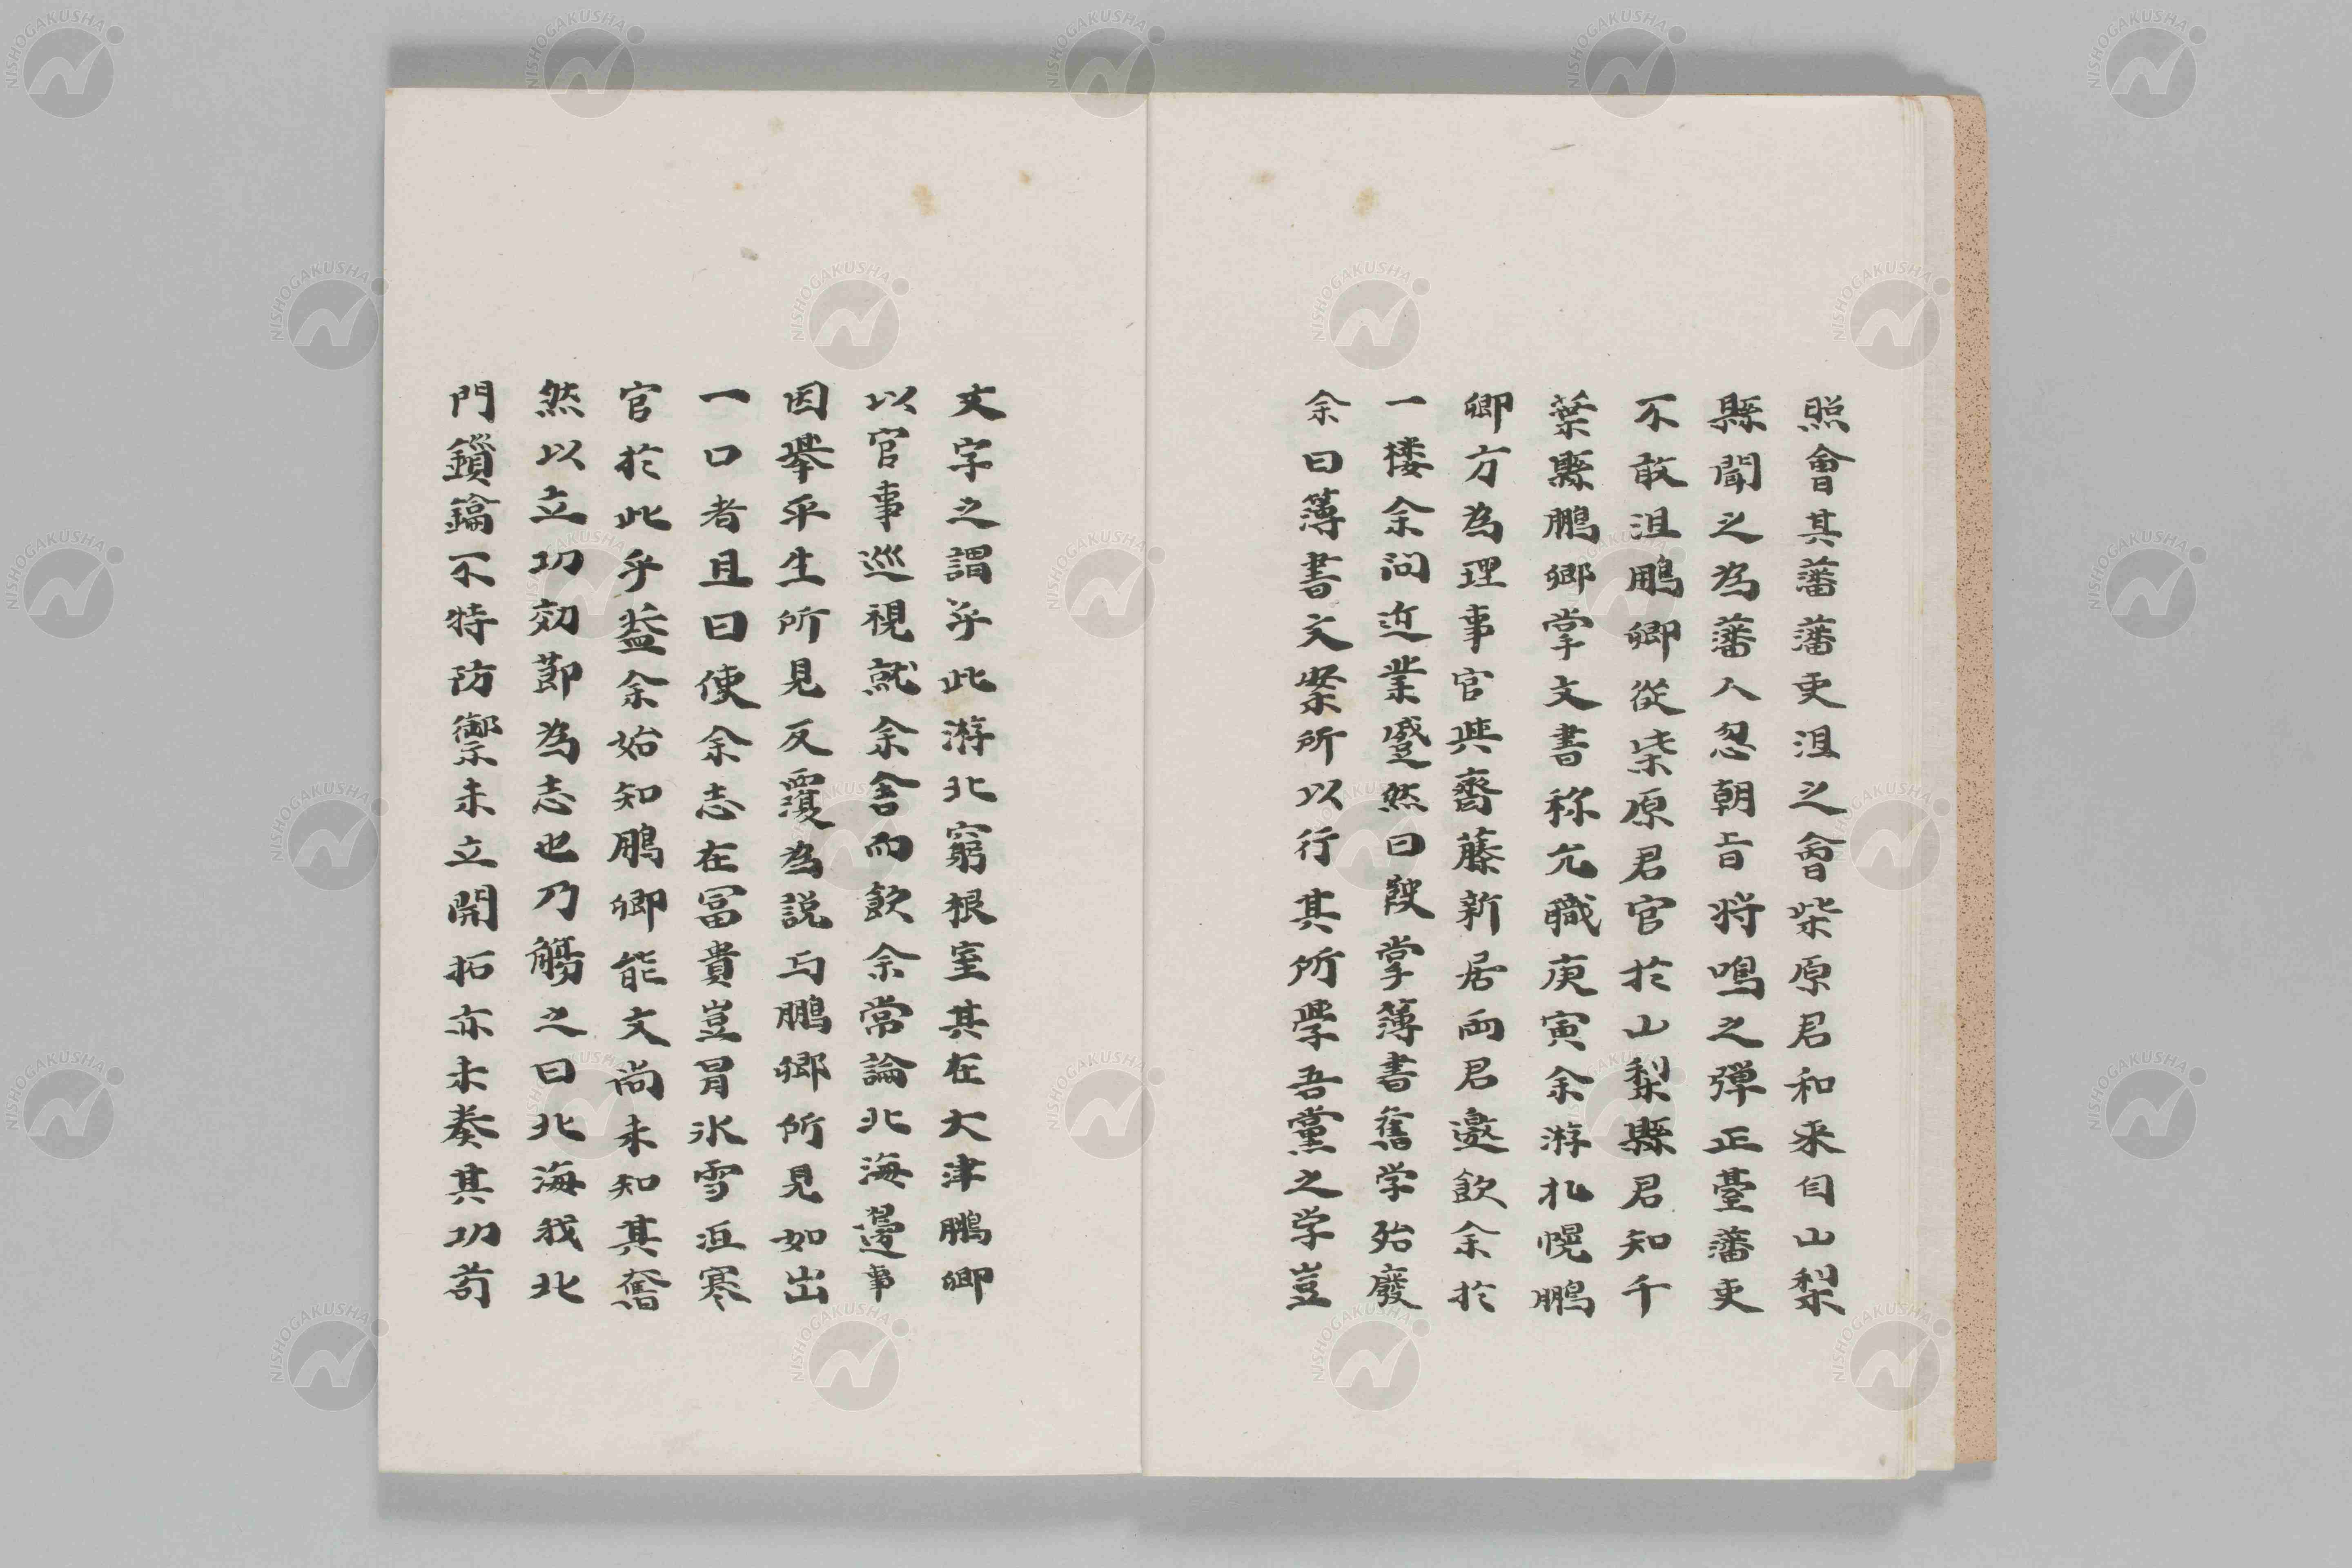 照會其藩藩吏沮之會柴原君和来自山梨
縣聞之為藩人忽朝旨将鳴之弾正臺藩吏
不敢沮鵬卿從柴原君官於山梨縣君知千
葉縣鵬卿掌文書称亢職庚寅余游札幌鵬
卿方為理事官與齋藤新居両君邀飲余於
一楼余問近業蹙然曰鞅掌簿書舊学殆廢
余曰簿書文案所以行其所學吾黨之学豈
文字之謂乎此游北窮根室其在大津鵬卿
以官事巡視就余舎而飲余常論北海邊事
因挙平生所見反覆為説与鵬卿所見如出
一口者且曰使余志在冨貴豈冒氷雪沍寒
官於此乎盖余始知鵬卿能文尚未知其奮
然以立功効節為志也乃觴之曰北海我北
門鎖鑰不特防禦未立開拓亦未奏其功苟
NISHOGAKUSHA